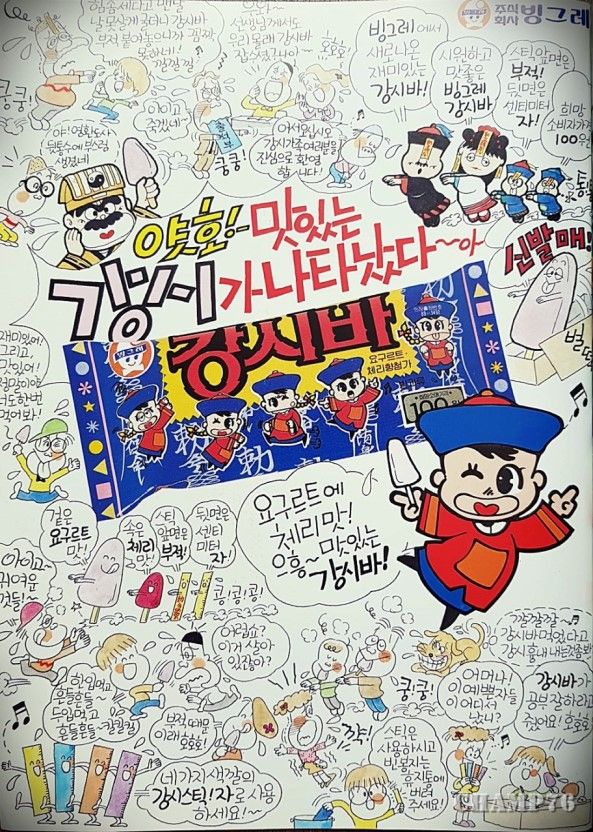 주식
회사 빙그레
힘 좀 세다고 맨날
부적 붙여놓으니까 꼼짝
못하네! 캑캑 깔깔
선생님께서도
우리 몰래 강시바
호호호
쿵쿵!
아이고
죽겠네
야! 영환도사
뒷통수에 부스럼
생겼네!
어서오십시오
강시가족 여러분을
진심으로 환영
합니다!
쿵쿵!
빙그레에서
새로나온
재미있는
강시바!
시원하고
맛좋은
빙그레
강시바
스틱 앞면은
부적!
뒷면은
센티미터
자!
희망
소비자가격
100원
얏호!- 맛있는
강시바가 나타났다~아
신발매!
빙그레
강시바
요구르트·
체리향첨가
100원
재미있어!
그리고,
맛있어!
너도 한번
먹어봐!
요구르트에
체리맛!
으흥~ 맛있는
강시바!
겉은
요구르트
맛!
속은
체리
맛!
스틱
앞면은
부적!
뒷면은
센티
미터
자!
콩!콩!콩!
아이고~
귀여운
것들!
어럽쇼?
이거 살아
있잖아?
한입먹고
흔들흔들
두입먹고
흔들흔들~킬킬킬
부적때문
이래 호호호!
쿵!쿵!
어머나!
이 예쁜 자들
이 어디서
났니?
강시바 먹었다고
강시 흉내내는 것좀 봐!
강시바가
공부 잘하라고
줬어요! 호호호
쫙!
스틱은
사용하시고
빈 봉지는
휴지통에
버려
주세요!
네가지 색깔의
강시스틱! 자로 사용
하세요!~
CHAMP76